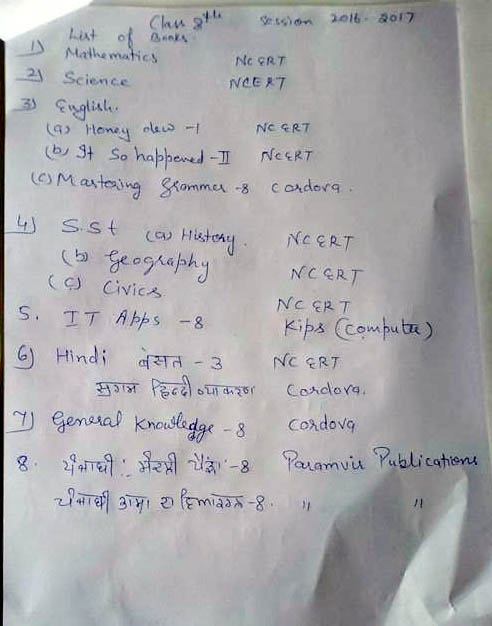 Class 8th Session 2016-2017
List of Books
1) Mathematics NCERT
2) Science NCERT
3) English.
(a) Honey dew -1 NCERT
(b) It So happened -II NCERT
(c) Mastering Grammer -8 Cordova.
4) S.St (a) History. NCERT
(b) Geography NCERT
(c) Civics NCERT
5. IT Apps -8 Kips (Computer)
6) Hindi बंसत - 3 NCERT
सुगम हिन्दी व्याकरण Cordova.
7) General Knowledge -8 Cordova
8. ਪੰਜਾਬੀ : -8 Paramvir Publications
ਪੰਜਾਬੀ ਭਾਸ਼ਾ ਦਾ ਵਿਆਕਰਨ -8. " "